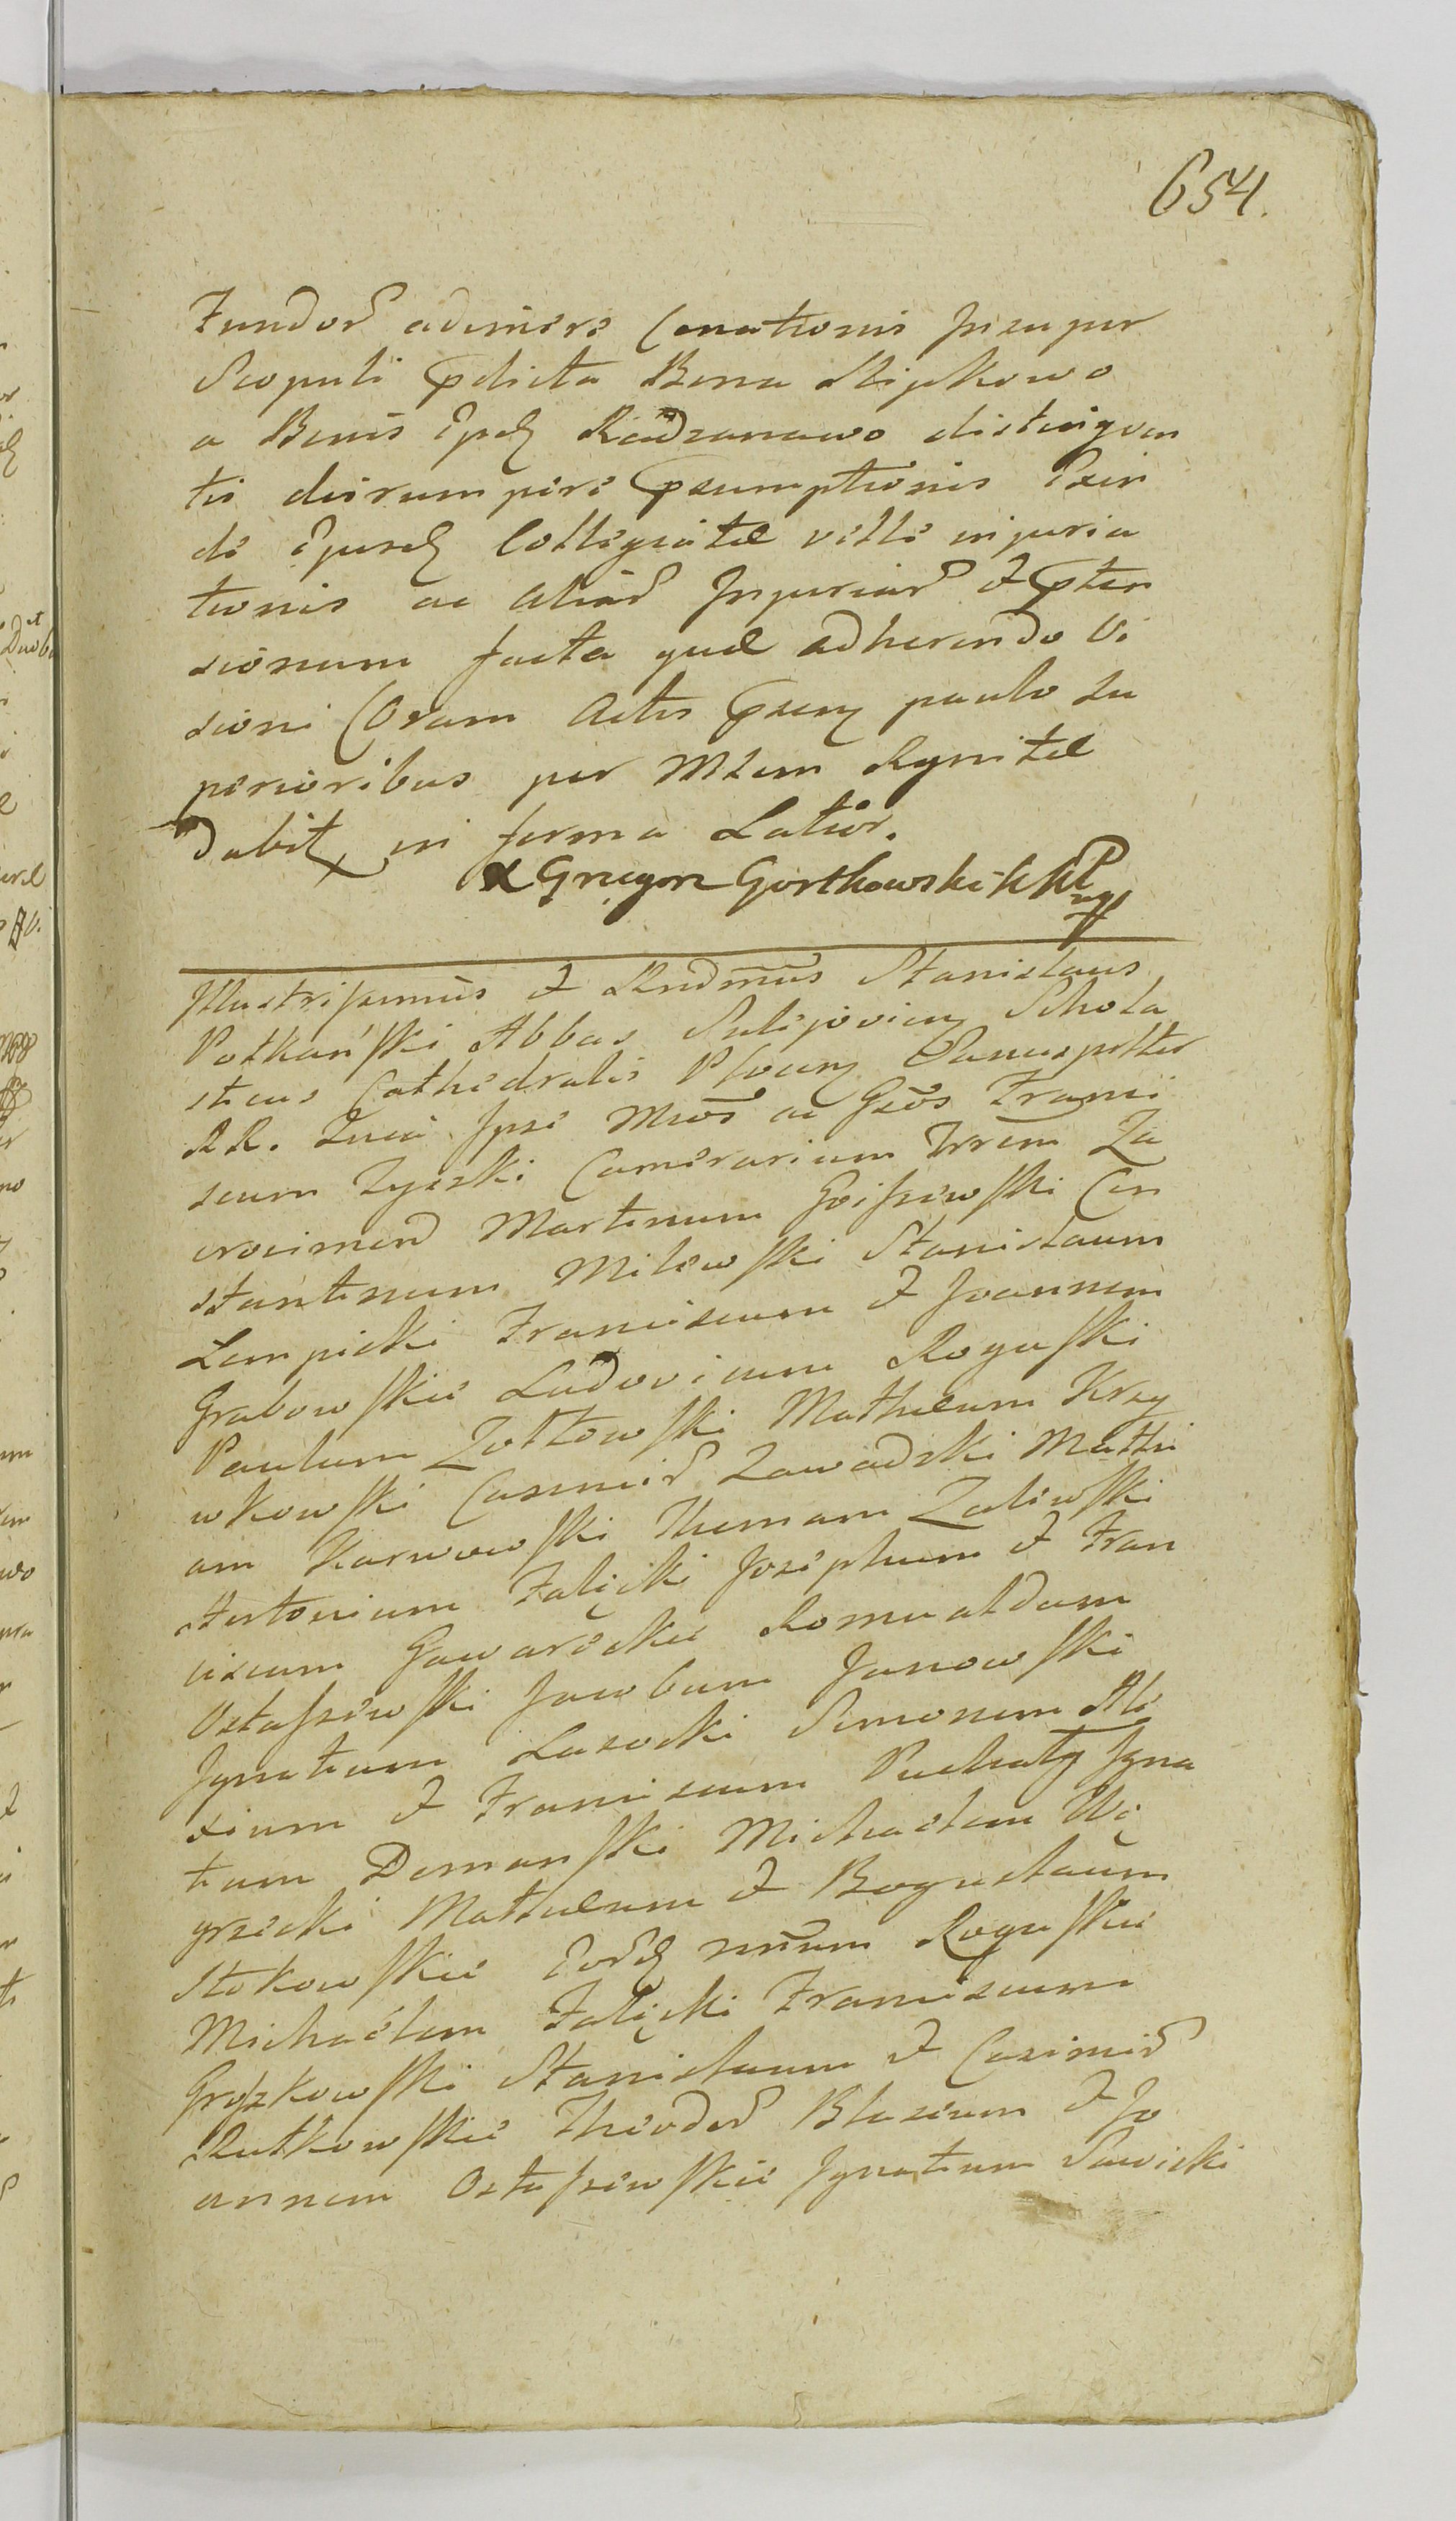 654.
Fundor adimere Conationis Insuper
Scopuli pdicta Bona Slipkowo
a Bonis Epd Radzanowo distingven
tis disrumpere psumptionis Exin
de Ejusd Collegiatæ velle injuria
tionis ac aliar Injuriar & pten
sionum facta quæ adherendo Vi
sioni Coram Actis psen paulo Su
perioribus per Mlem Rgnitæ
dabit in forma Latior.
X Grzegorz Gortkowski
Illustrissimus & Rndmus Stanislaus
Potkański Abbas Sulejovien Schola
sticus Cathedralis Plocen
RR. Quia Ipse Mcos ac Gsos Franci
scum Zyzski Camerarium Trrem Za
crocimen Martinum Goissewski Con
stantinum Milewski Stanislaum
Lempicki Franciscum & Joannem
Grabowskie Ludovicum Roguski
Paulum Zołtowski Mathæum Krzy
wkowski Casimir Zawadzki Mathi
am Karwowski Thomam Zalewski
Antonium Falęcki Josephum & Fran
ciscum Gawareckie Romualdum
Ostaszewski Jacobum Janowski
Ignatium Lasocki Simonem Ale
xium & Franciscum Puchały Igna
tium Domanski Michaelem Wę
grzecki Mathæum & Boguslaum
Stokowskie Eord nnum Roguskie
Michaelem Falęcki Franciscum
Groszkowski Stanislaum & Casimir
Rutkowskie Theodor Blasium & Jo
annem Ostaszewskie Ignatium Sawicki